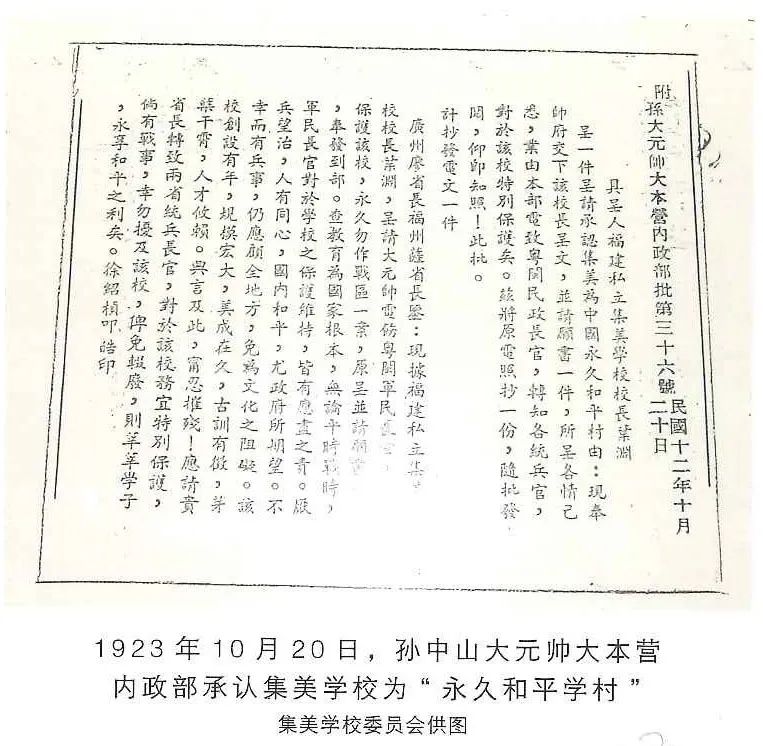 附孫大元帥大本營內政部批第三十六號民國十二年十月二十日
具呈人福建私立集美學校校長葉淵
呈一件呈請承認集美為中國永久和平村由：現奉
帥府交下該校長呈文，並請願書一件，所呈各情已
悉，業由本部電致粵閩民政長官，轉知各統兵官，
對於該校特別保護矣。茲將原電照抄一份，隨批發
閱，仰即知照！此批。
計抄發電文一件
廣州廖省長福州薩省長鑒：現據福建私立集
校校長葉淵，呈請大元帥電飭粵閩軍民
保護該校，永久勿作戰區一案，原呈並請願書
，奉發到部。查教育為國家根本，無論平時戰時，
軍民長官對於學校之保護維持，皆有應盡之責。厥
兵望治，人有同心，國內和平，尤政府所期望。不
幸而有兵事，仍應顧全地方，免為文化之阻礙。該
校創設有年，規模宏大，美成在久，古訓有徵，芽
蘖干霄，人才攸賴。興言及此，甯忍摧殘！應請貴
省長轉致兩省統兵長官，對於該校務宜特別保護，
倘有戰事，幸勿擾及該校，俾免輟廢，則莘莘学子
，永享和平之利矣。徐紹楨叩皓印
1923 年 10 月 20 日，孙中山大元帅大本营
内政部承认集美学校为“永久和平学村”
集美学校委员会供图